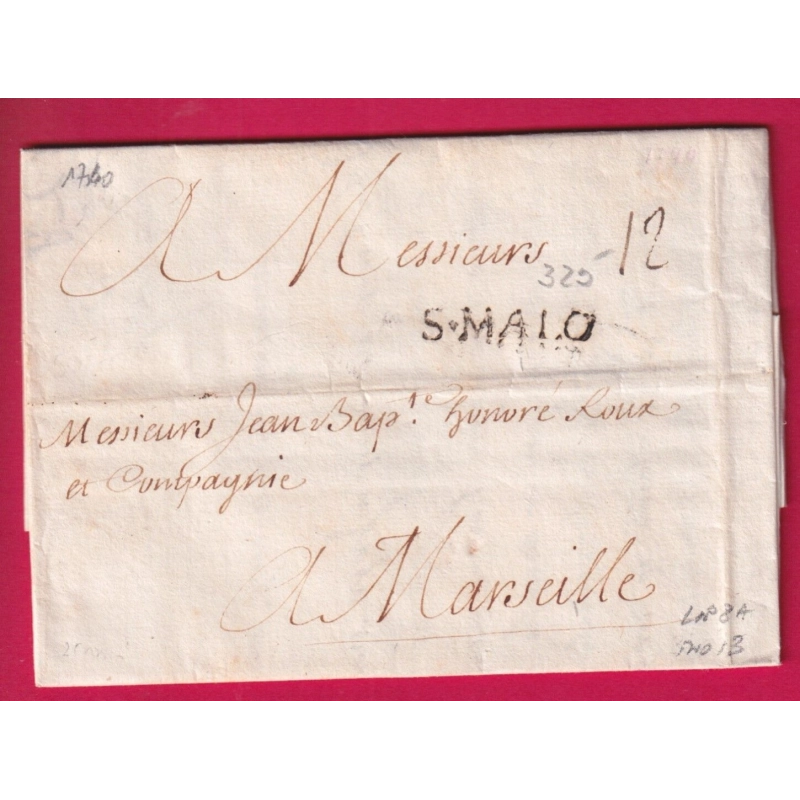 1740
A Messieurs 12
325
S·MALO
Messieurs Jean Bap.te honoré Roux
et Compagnie
A Marseille